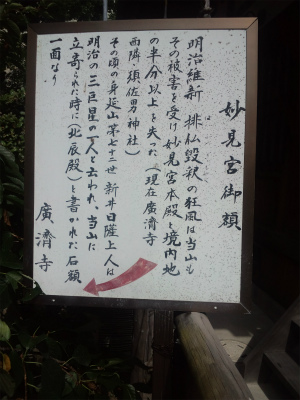 妙見宮御額
明治維新 排仏毀釈の狂風は当山も
その被害を受け妙見宮本殿と境内地
の半分以上を失った(現在廣済寺
西隣・須佐男神社)
その頃の身延山第七十三世 新井日薩上人は
明治の三巨星の一人と云われ、当山に
立寄られた時に(北辰殿)と書かれた石額
一面なり
廣済寺